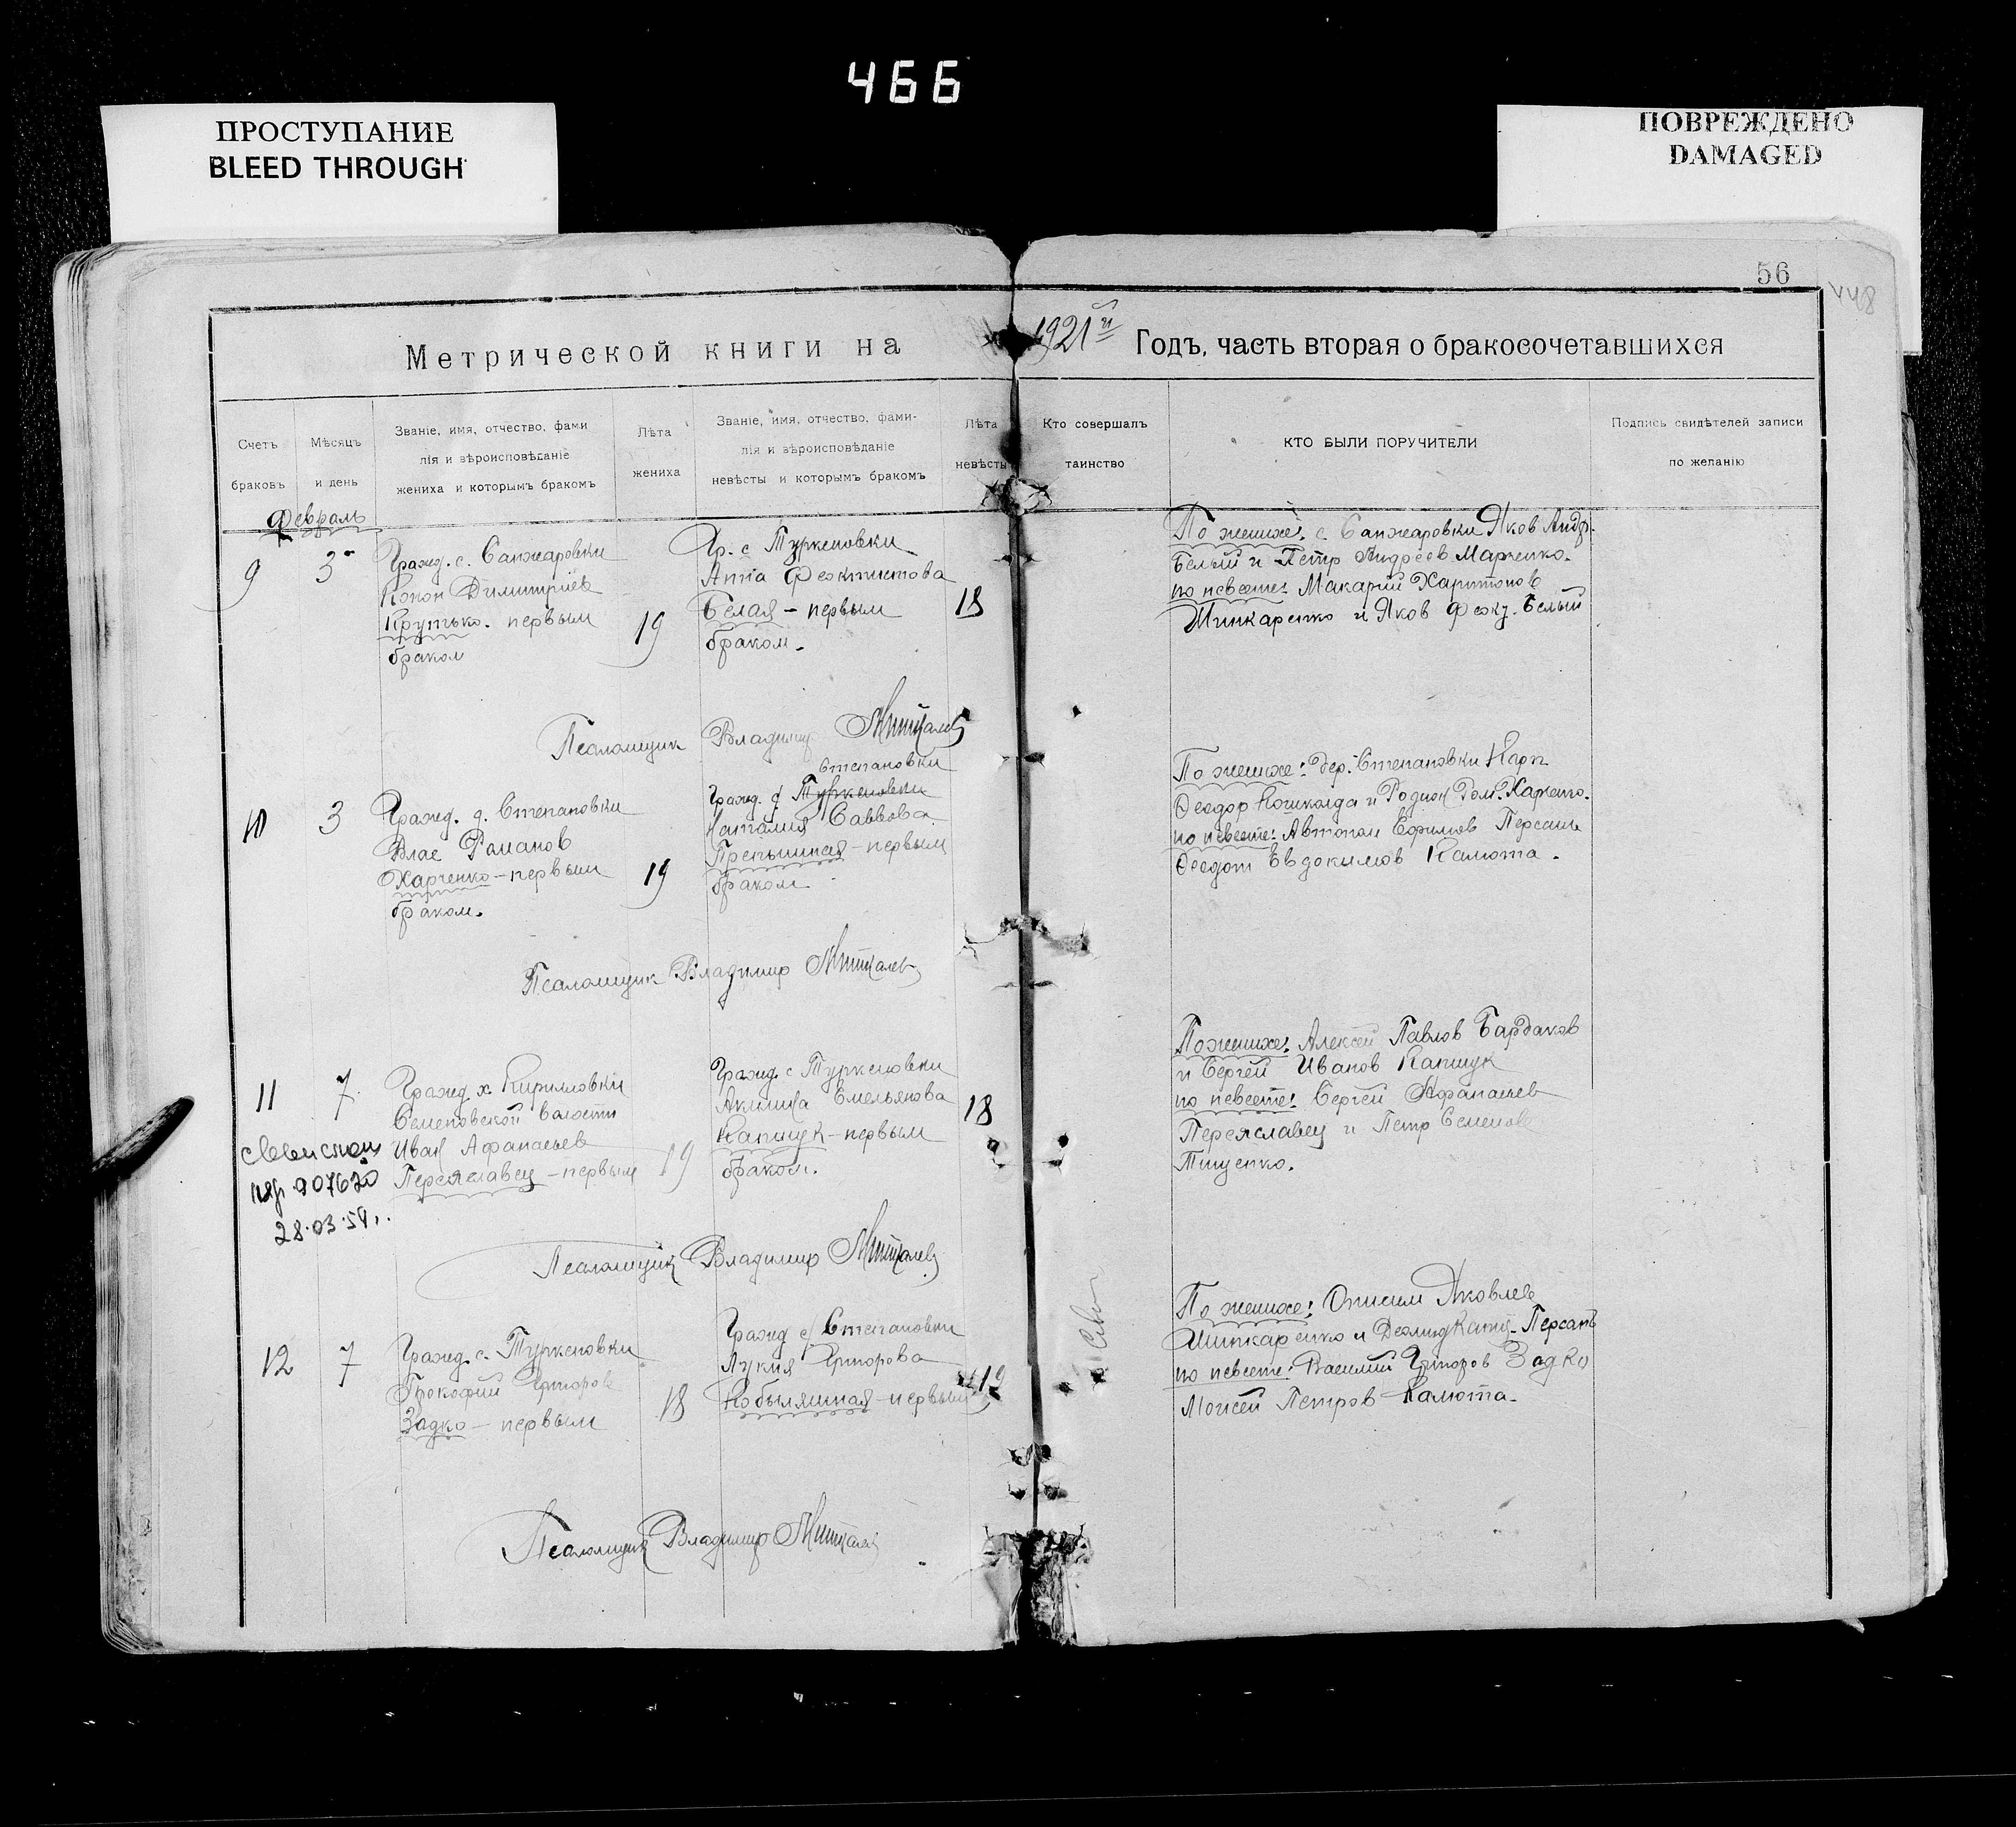 466
ПРОСТУПАНИЕ
BLEED THROUGH
ПОВРЕЖДЕНО
DAMAGED
56
448
Метрической книги на 1921 й Годъ, часть вторая о бракосочетавшихся
Счетъ
браковъ
Мѣсяцъ
и день
Званіе, имя, отчество, фами
лія и вѣроисповѣданіе
жениха и которымъ бракомъ
Лѣта
жениха
Званіе, имя, отчество, фами-
лія и вѣроисповѣданіе
невѣсты и которымъ бракомъ
Лѣта
невѣсты
Кто совершалъ
таинство
КТО БЫЛИ ПОРУЧИТЕЛИ
Подпись свидѣтелей записи
по желанію
Февраль
9
3
Гражд. с. Санжаровки
Конон Димитриев
Крутько. первым
браком
19
Гр. с Туркеновки
Анна Феоктистова
Белая - первым
браком.
18
По женихе: с. Санжаровки Яков Андр.
Белый и Петр Андреев Марченко.
по невесте: Макарий Харитонов
Шинкаренко и Яков Феок. Белый
Псаломщик Владимир
10
3
Гражд. д. Степановки
Влас Романов
Харченко - первым
браком.
19
Степановки
Гражд. Туркеновки
Наталия Саввова
первым
браком
По женихе: дер. Степановки Карп
Феодор и Родион Ром. Харченко.
по невесте: Автоном Ефимов Персань
Федот Евдокимов Калюта.
Псаломщик Владимир
11
7
Гражд. х. Кирилловки
Семеновской волости
Иван Афанасьев
Переяславец - первым
19
Гражд. с Туркеновки
Акилина Емельянова
Капшук - первым
браком.
18
По женихе: Алексей Павлов Бардаков
и Сергей Иванов Капшук
по невесте: Сергей Афанасьев
Переяславец и Петр Семенов
Тищенко.
907620
28.03.54г.
Псаломщик Владимир
12
7
Гражд. с. Туркеновки
Прокофий Григоров
Задко - первым
18
Гражд с/ Степановки
Лукия Григорова
Кобыляшная - первым
19
По женихе: Онисим Яковлев
Шинкаренко и Персань
по невесте: Василий Григоров Задко
Моисей Петров Калюта.
Псаломщик Владимир